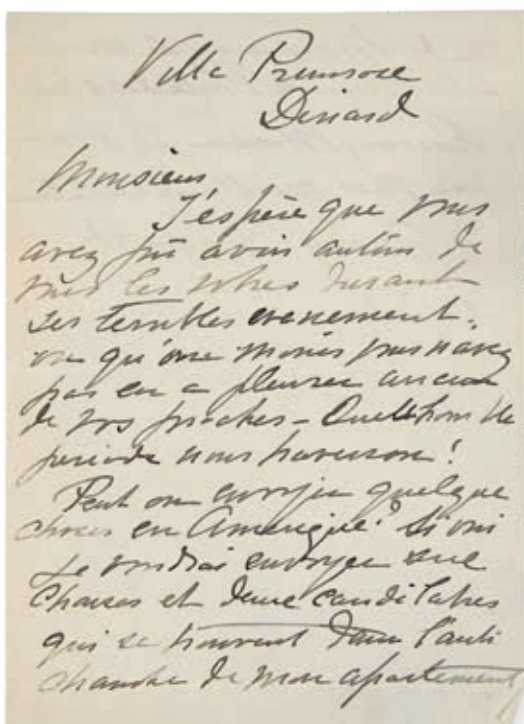 Villa Primrose
Dinard
Monsieur
J'espère que vous
avez pu avoir autour de
vous les votres durant
ces terribles evenement.
ou qu'au moins vous n'avez
pas eu a pleurer aucun
de vos proches - Quelle horrible
periode nous traverson!
Peut on envoyer quelque
choses en Amerique? Si oui
je voudrai envoyer
chaises et deux candelabres
qui se trouvent dans l'anti
chambre de mon apartement